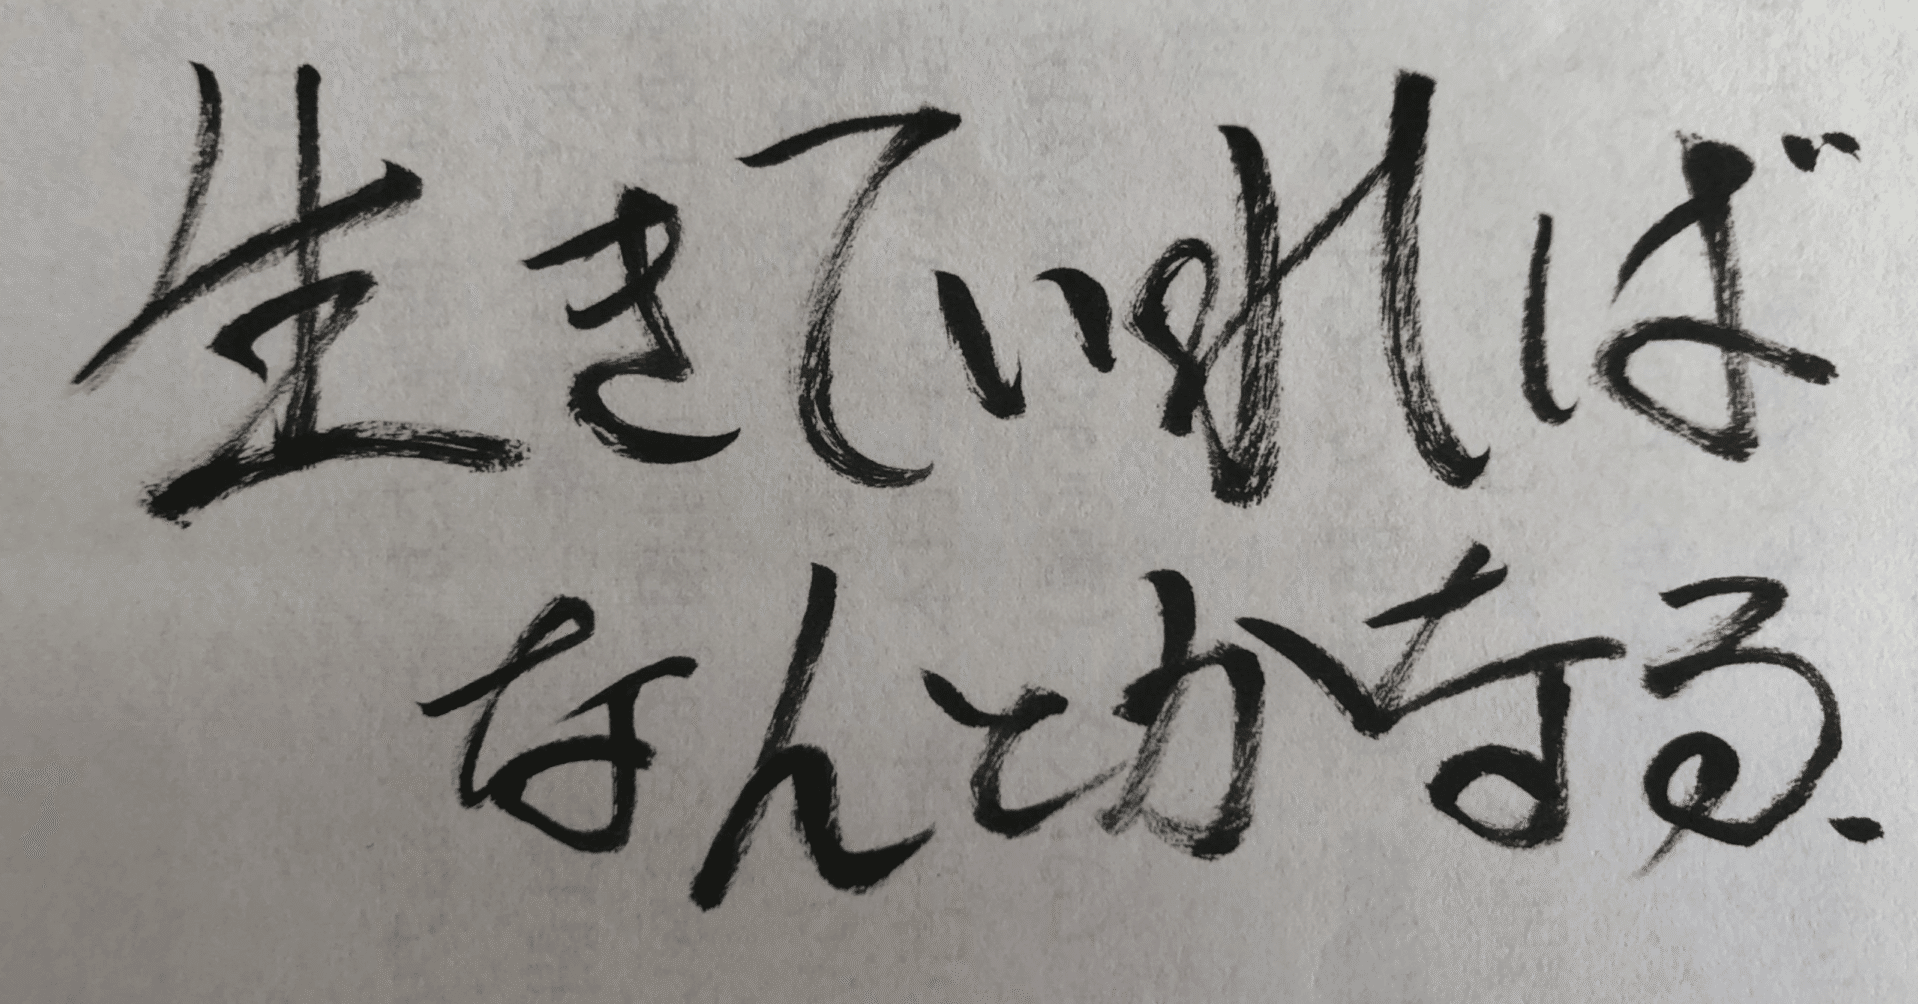 生きていれば
なんとかなる.